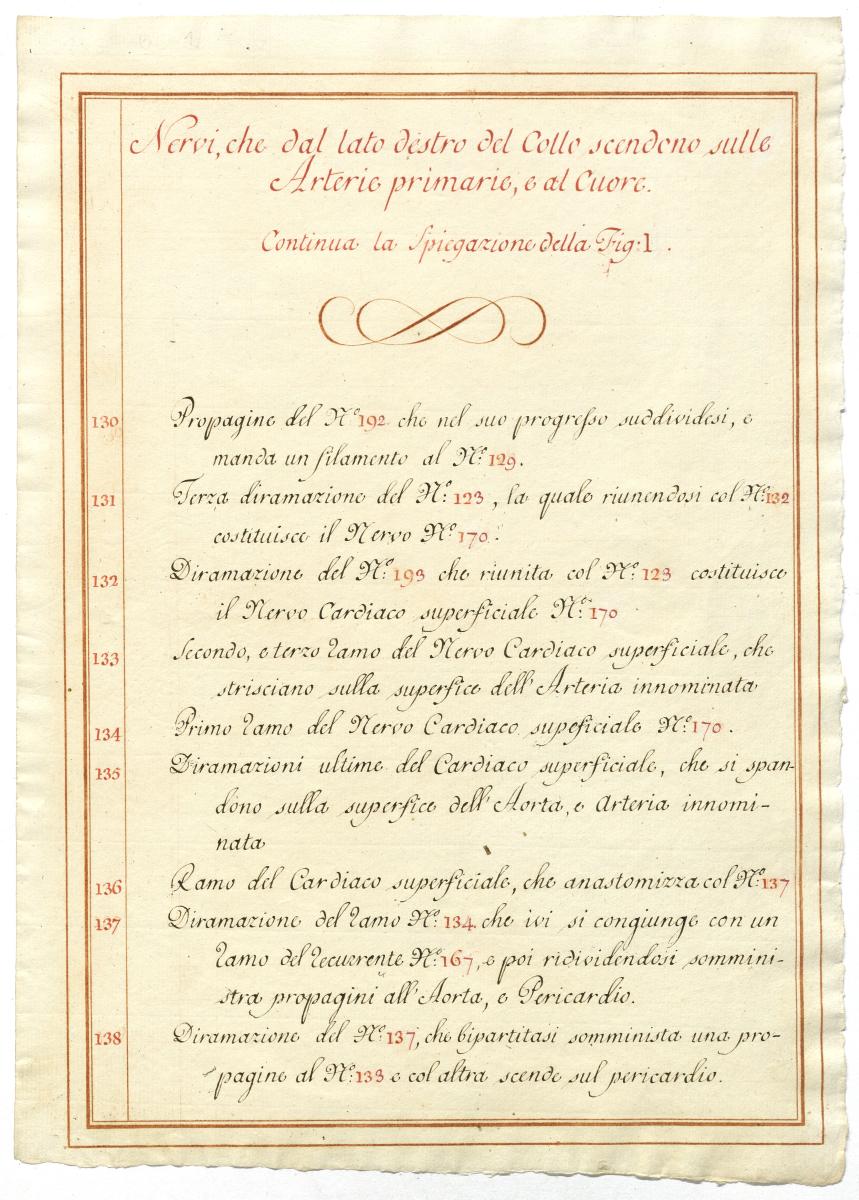 Nervi, che dal lato destro del Collo scendono sulle
Arterie primarie, e al Cuore.
Continua la Spiegazione della Fig: 1.
130 Propagine del N.º 192 che nel suo progresso suddividesi, e
manda un filamento al N.º 129.
131 Terza diramazione del N.º 123, la quale riunendosi col N.º 132
costituisce il Nervo N.º 170.
132 Diramazione del N.º 193 che riunita col N.º 123 costituisce
il Nervo Cardiaco superficiale N.º 170
133 Secondo, e terzo ramo del Nervo Cardiaco superficiale, che
strisciano sulla superfice dell'Arteria innominata
134 Primo ramo del Nervo Cardiaco supeficiale N.º 170.
135 Diramazioni ultime del Cardiaco superficiale, che si span-
dono sulla superfice dell'Aorta, e Arteria innomi-
nata
136 Ramo del Cardiaco superficiale, che anastomizza col N.º 137
137 Diramazione del ramo N.º 134. che ivi si congiunge con un
ramo del recurrente N.º 167, e poi ridividendosi sommini-
stra propagini all'Aorta, e Pericardio.
138 Diramazione del N.º 137, che bipartitasi somminista una pro-
pagine al N.º 133 e col altra scende sul pericardio.